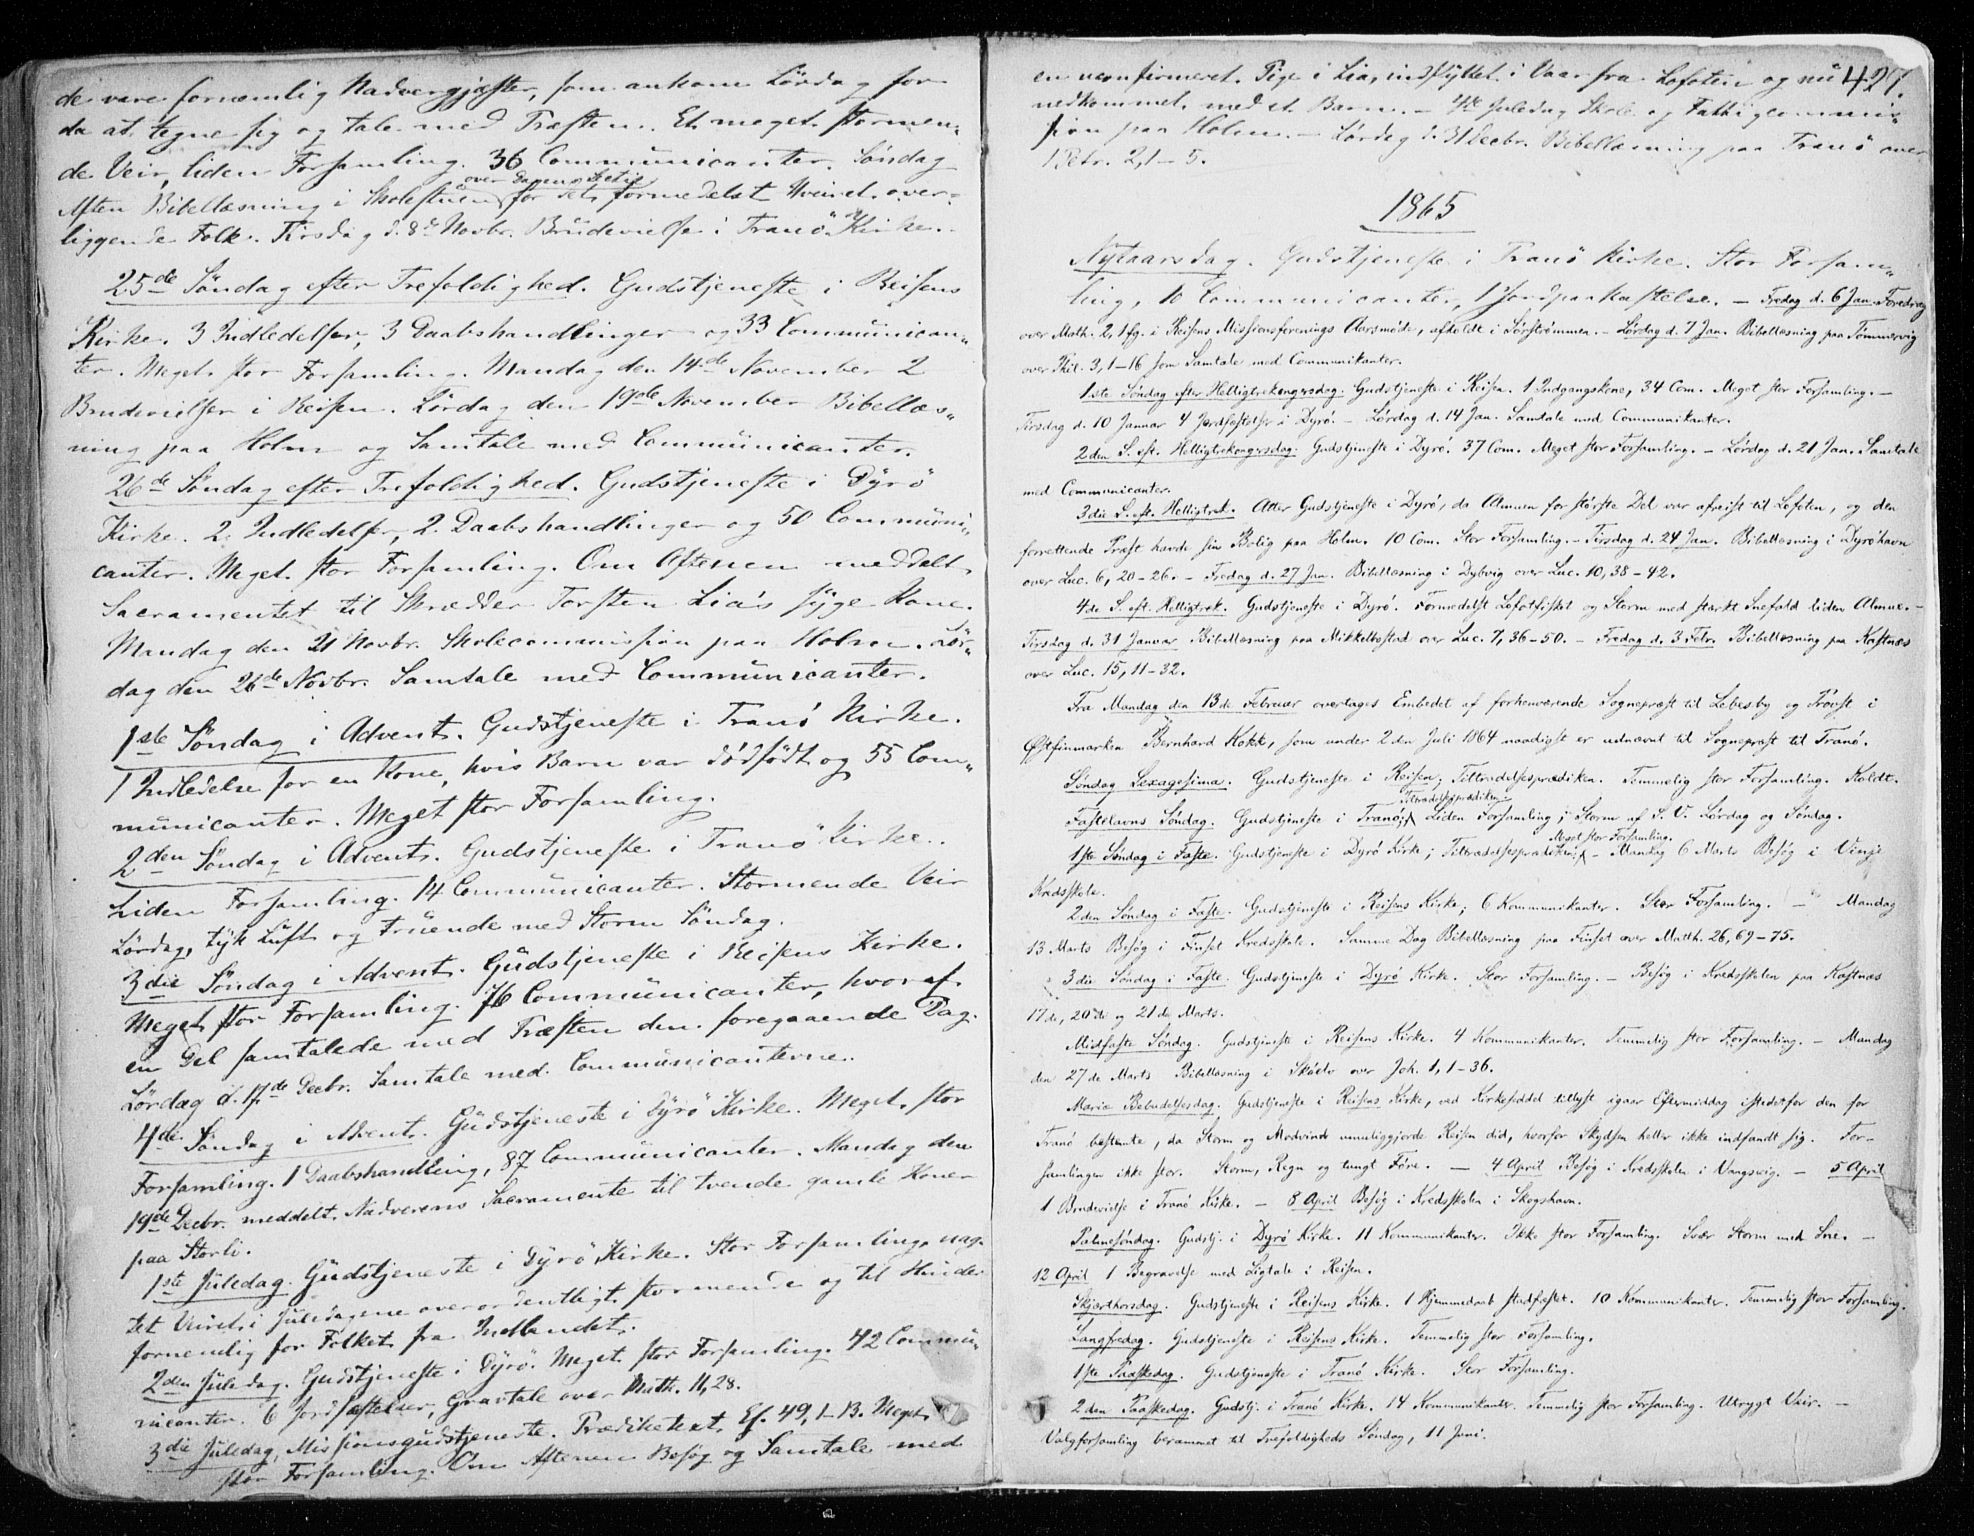 de vare fornemlig Nadvergjæster, som ankom Lördag for
da at tegne sig og tale med Præsten. Et meget stormen-
de Veir, liden Forsamling. 36 Communicanter. Søndag
over Dagens Lectie
Aften Bibellæsning i Skolestuen for det formedelst Uveiret over-
liggende Folk. Tirsdag d. 8de Novbr. Brudevielse i Tranö Kirke.
25de Søndag efter Trefoldighed. Gudstjeneste i Reisens
Kirke. 3 Indledelser, 3 Daabshandlinger og 33 Communican-
ter. Meget stor Forsamling. Mandag den 14de November 2
Brudevielser i Reisen. Lördag den 19de November Bibellæs-
ning paa Holm og Samtale med Communicanter.
26de Søndag efter Trefoldighed. Gudstjeneste i Dyrö
Kirke. 2 Indledelser, 2 Daabshandlinger og 50 Communi-
canter. Meget stor Forsamling. Om Aftenen meddelt
Sacramentet til Skrædder Torsten Lia's syge Kone.
Mandag den 21 Novbr. Skolecommission paa Holm. Lör-
dag den 26de Novbr. Samtale med Communicanter.
1ste Søndag i Advent. Gudstjeneste i Tranö Kirke.
1 Indledelse for en Kone, hvis Barn var dödfödt og 55 Com-
municanter. Meget stor Forsamling.
2den Søndag i Advent. Gudstjeneste i Tranö Kirke.
Liden Forsamling. 14 Communicanter. Stormende Veir
Lördag, tyk Luft og truende med Storm Söndag.
3die Søndag i Advent. Gudstjeneste i Reisens Kirke.
Meget stor Forsamling. 76 Communicanter, hvoraf
en Del samtalede med Præsten den foregaaende Dag.
Lördag d. 17de Decbr. Samtale med Communicanterne.
4de Søndag i Advent. Gudstjeneste i Dyrö Kirke. Meget stor
Forsamling. 1 Daabshandling, 87 Communicanter. Mandag den
19de Decbr. meddelt Nadverens Sacramente til tvende gamle Koner
paa Storli.
1ste Juledag. Gudstjeneste i Dyrö Kirke. Stor Forsamling, uag-
tet Veiret i Juledagene overordentligt stormende og til Hinder
fornemlig for Folket fra Indlandet.
2den Juledag. Gudstjeneste i Dyrö. Meget stor Forsamling. 42 Commu-
nicanter. 6 Jordfæstelser, Gravtale over Math. 11,28.
3die Juledag, Missionsgudstjeneste. Prædiketext Es. 49, 1-13. Meget
stor Forsamling. Om Aftenen Besøg og Samtale med
en uconfirmeret Pige i Lia, indflyttet i Vaar fra Lofoten og nu 427.
nedkommet med et Barn. - 4de Juledag Skole og Fattigcommis-
sion paa Holm. - Lördag d. 31 Decbr. Bibellæsning paa Tranö over
1 Petr. 2,1-5.
1865
Nytaarsdag. Gudstjeneste i Tranö Kirke. Stor Forsam-
ling, 10 Communicanter, 1 Jordpaakastelse. - Fredag d. 6 Jan. Foredrag
over Math. 2,1 fg. i Reisens Missionsforenings Aarsmöde, afholdt i Sörströmmen. - Lördag d. 7 Jan. Bibellæsning paa Tömmervig
over Phil. 3, 1-16 som Samtale med Communikanter.
1ste Søndag efter Helligtrekongersdag. Gudstjeneste i Reisen. 1 Indgangskone, 34 Com. Meget stor Forsamling. -
Tirsdag d. 10 Januar 4 Jordfæstelser i Dyrö. - Lördag d. 14 Jan. Samtale med Communikanter.
2den S. eft. Helligtrekongersdag. Gudstjeneste i Dyrö. 37 Com. Meget stor Forsamling. - Lördag d. 21 Jan. Samtale
med Communicanter.
3die S. eft. Helligtrek. Atter Gudstjeneste i Dyrö, da Almuen for störste Del var afreist til Lofoten, og den
forrettende Præst havde sin Bolig paa Holm. 10 Com. Stor Forsamling. - Tirsdag d. 24 Jan. Bibellæsning i Dyröhavn
over Luc. 6, 20-26. - Fredag d. 27 Jan. Bibellæsning i Dybvig over Luc. 10, 38-42.
4de S. eft. Helligtrek. Gudstjeneste i Dyrö. Formedelst Lofotfisket og Storm med stærkt Snefald liden Almue. -
Tirsdag d. 31 Januar Bibellæsning paa Mikkelbostad over Luc. 7, 36-50. - Fredag d. 3 Febr. Bibellæsning paa Kastnæs
over Luc. 15, 11-32.
Fra Mandag den 13de Februar overtages Embedet af forhenværende Sognepræst til Lebesby og Provst i
Östfinmarken Bernhard Kokk, som under 2den Juli 1864 naadigst er udnævnt til Sognepræst til Tranö.
Søndag Sexagesima. Gudstjeneste i Reisen; Tiltrædelsesprædiken. Temmelig stor Forsamling. Koldt.
Tiltrædelsesprædiken.
Fastelavns Søndag. Gudstjeneste i Tranö; Liden Forsamling; Storm af S. V. Lördag og Søndag.
Meget stor Forsamling.
1ste Søndag i Faste. Gudstjeneste i Dyrö Kirke; Tiltrædelsesprædiken; - Mandag 6 Marts Besög i Vinje
Kredsskole.
2den Søndag i Faste. Gudstjeneste i Reisens Kirke; 6 Kommunikanter. Stor Forsamling. - Mandag
13 Marts Besög i Finset Kredsskole. Samme Dag Bibellæsning paa Finset over Matth. 26, 69-75.
3die Søndag i Faste. Gudstjeneste i Dyrö Kirke. Stor Forsamling. - Besög i Kredsskolen paa Kastnæs
17de, 20de og 21de Marts.
Midfaste Søndag. Gudstjeneste i Reisens Kirke. 4 Kommunikanter. Temmelig stor Forsamling. - Mandag
den 27de Marts Bibellæsning i Skøelv over Joh. 1, 1-36.
Mariæ Bebudelsesdag. Gudstjeneste i Reisens Kirke, ved Kirkesiddel tillyst igaar Eftermiddag istedetfor den for
Tranö bestemte, da Storm og Modvind umuliggjorde Reisen did, hvorfor Skydsen heller ikke indfandt sig. For-
samlingen ikke stor. Storm, Regn og tungt Före. - 4 April Besög i Kredsskolen i Vangsvig. - 5 April
1 Brudevielse i Tranö Kirke. - 8 April Besög i Kredsskolen i Skogshavn.
Palmesöndag. Gudstj. i Dyrö Kirke. 11 Kommunikanter. Ikke stor Forsamling. Svær Storm med Sne. -
12 April 1 Begravelse med Ligtale i Reisen.
Skjærthorsdag. Gudstjeneste i Reisens Kirke. 1 Hjemmedaab stadfæstet. 10 Kommunikanter. Temmelig stor Forsamling.
Langfredag. Gudstjeneste i Reisens Kirke. Temmelig stor Forsamling.
1ste Paaskedag. Gudstjeneste i Tranö Kirke. Stor Forsamling.
2den Paaskedag. Gudstj. i Tranö Kirke. 14 Kommunikanter. Temmelig stor Forsamling. Utrygt Veir. -
Valgforsamling berammet til Trefoldigheds Söndag, 11 Juni.